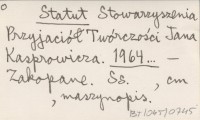 Statut Stowarzyszenia
Przyjaciół Twórczości Jana
Kasprowicza. 1964... —
Zakopane. Ss. , cm
, maszynopis.